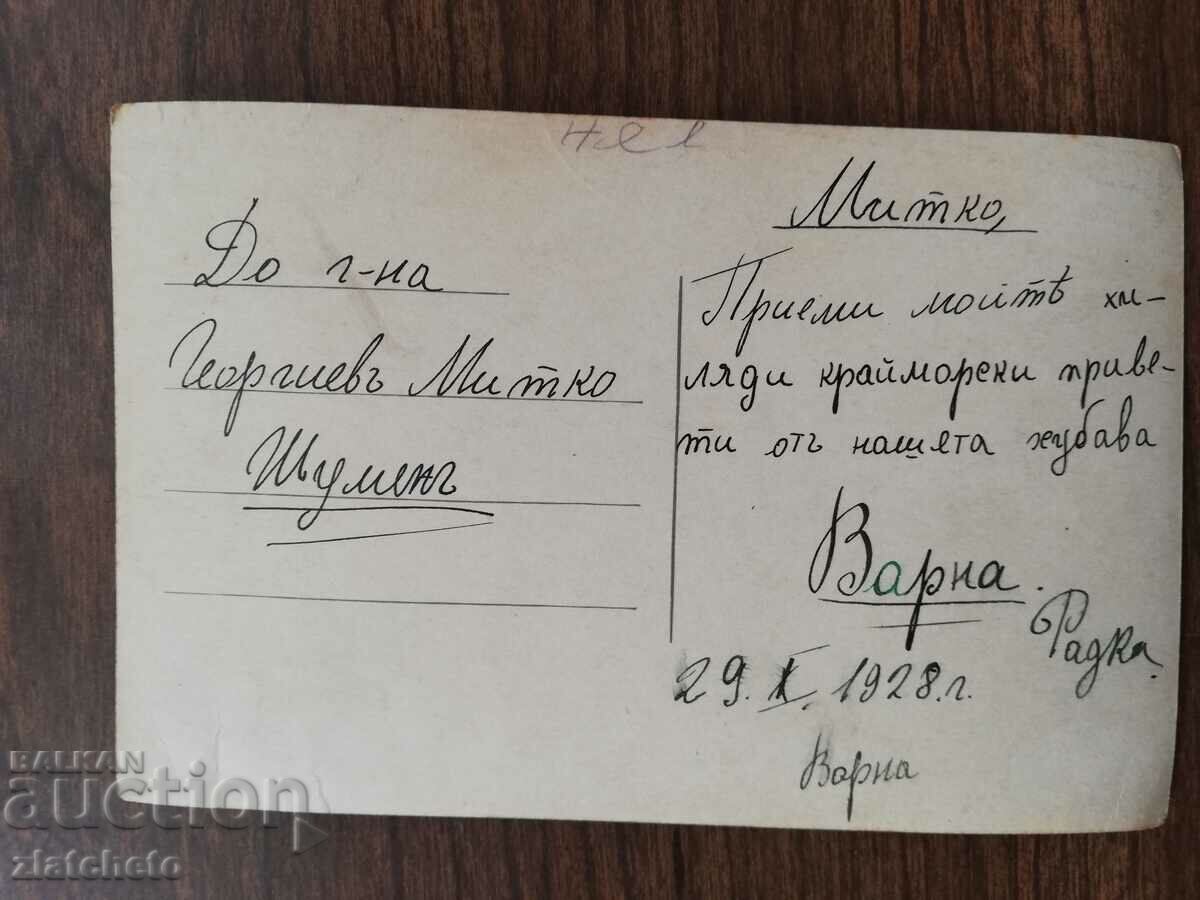 До г-на
Георгиевъ Митко
Шуменъ
Митко,
Приеми моитѣ хи-
ляди крайморски приве-
ти отъ нашета хубава
Варна.
Радка
29. X. 1928 г.
Варна
BALKAN
auction
zlatcheto